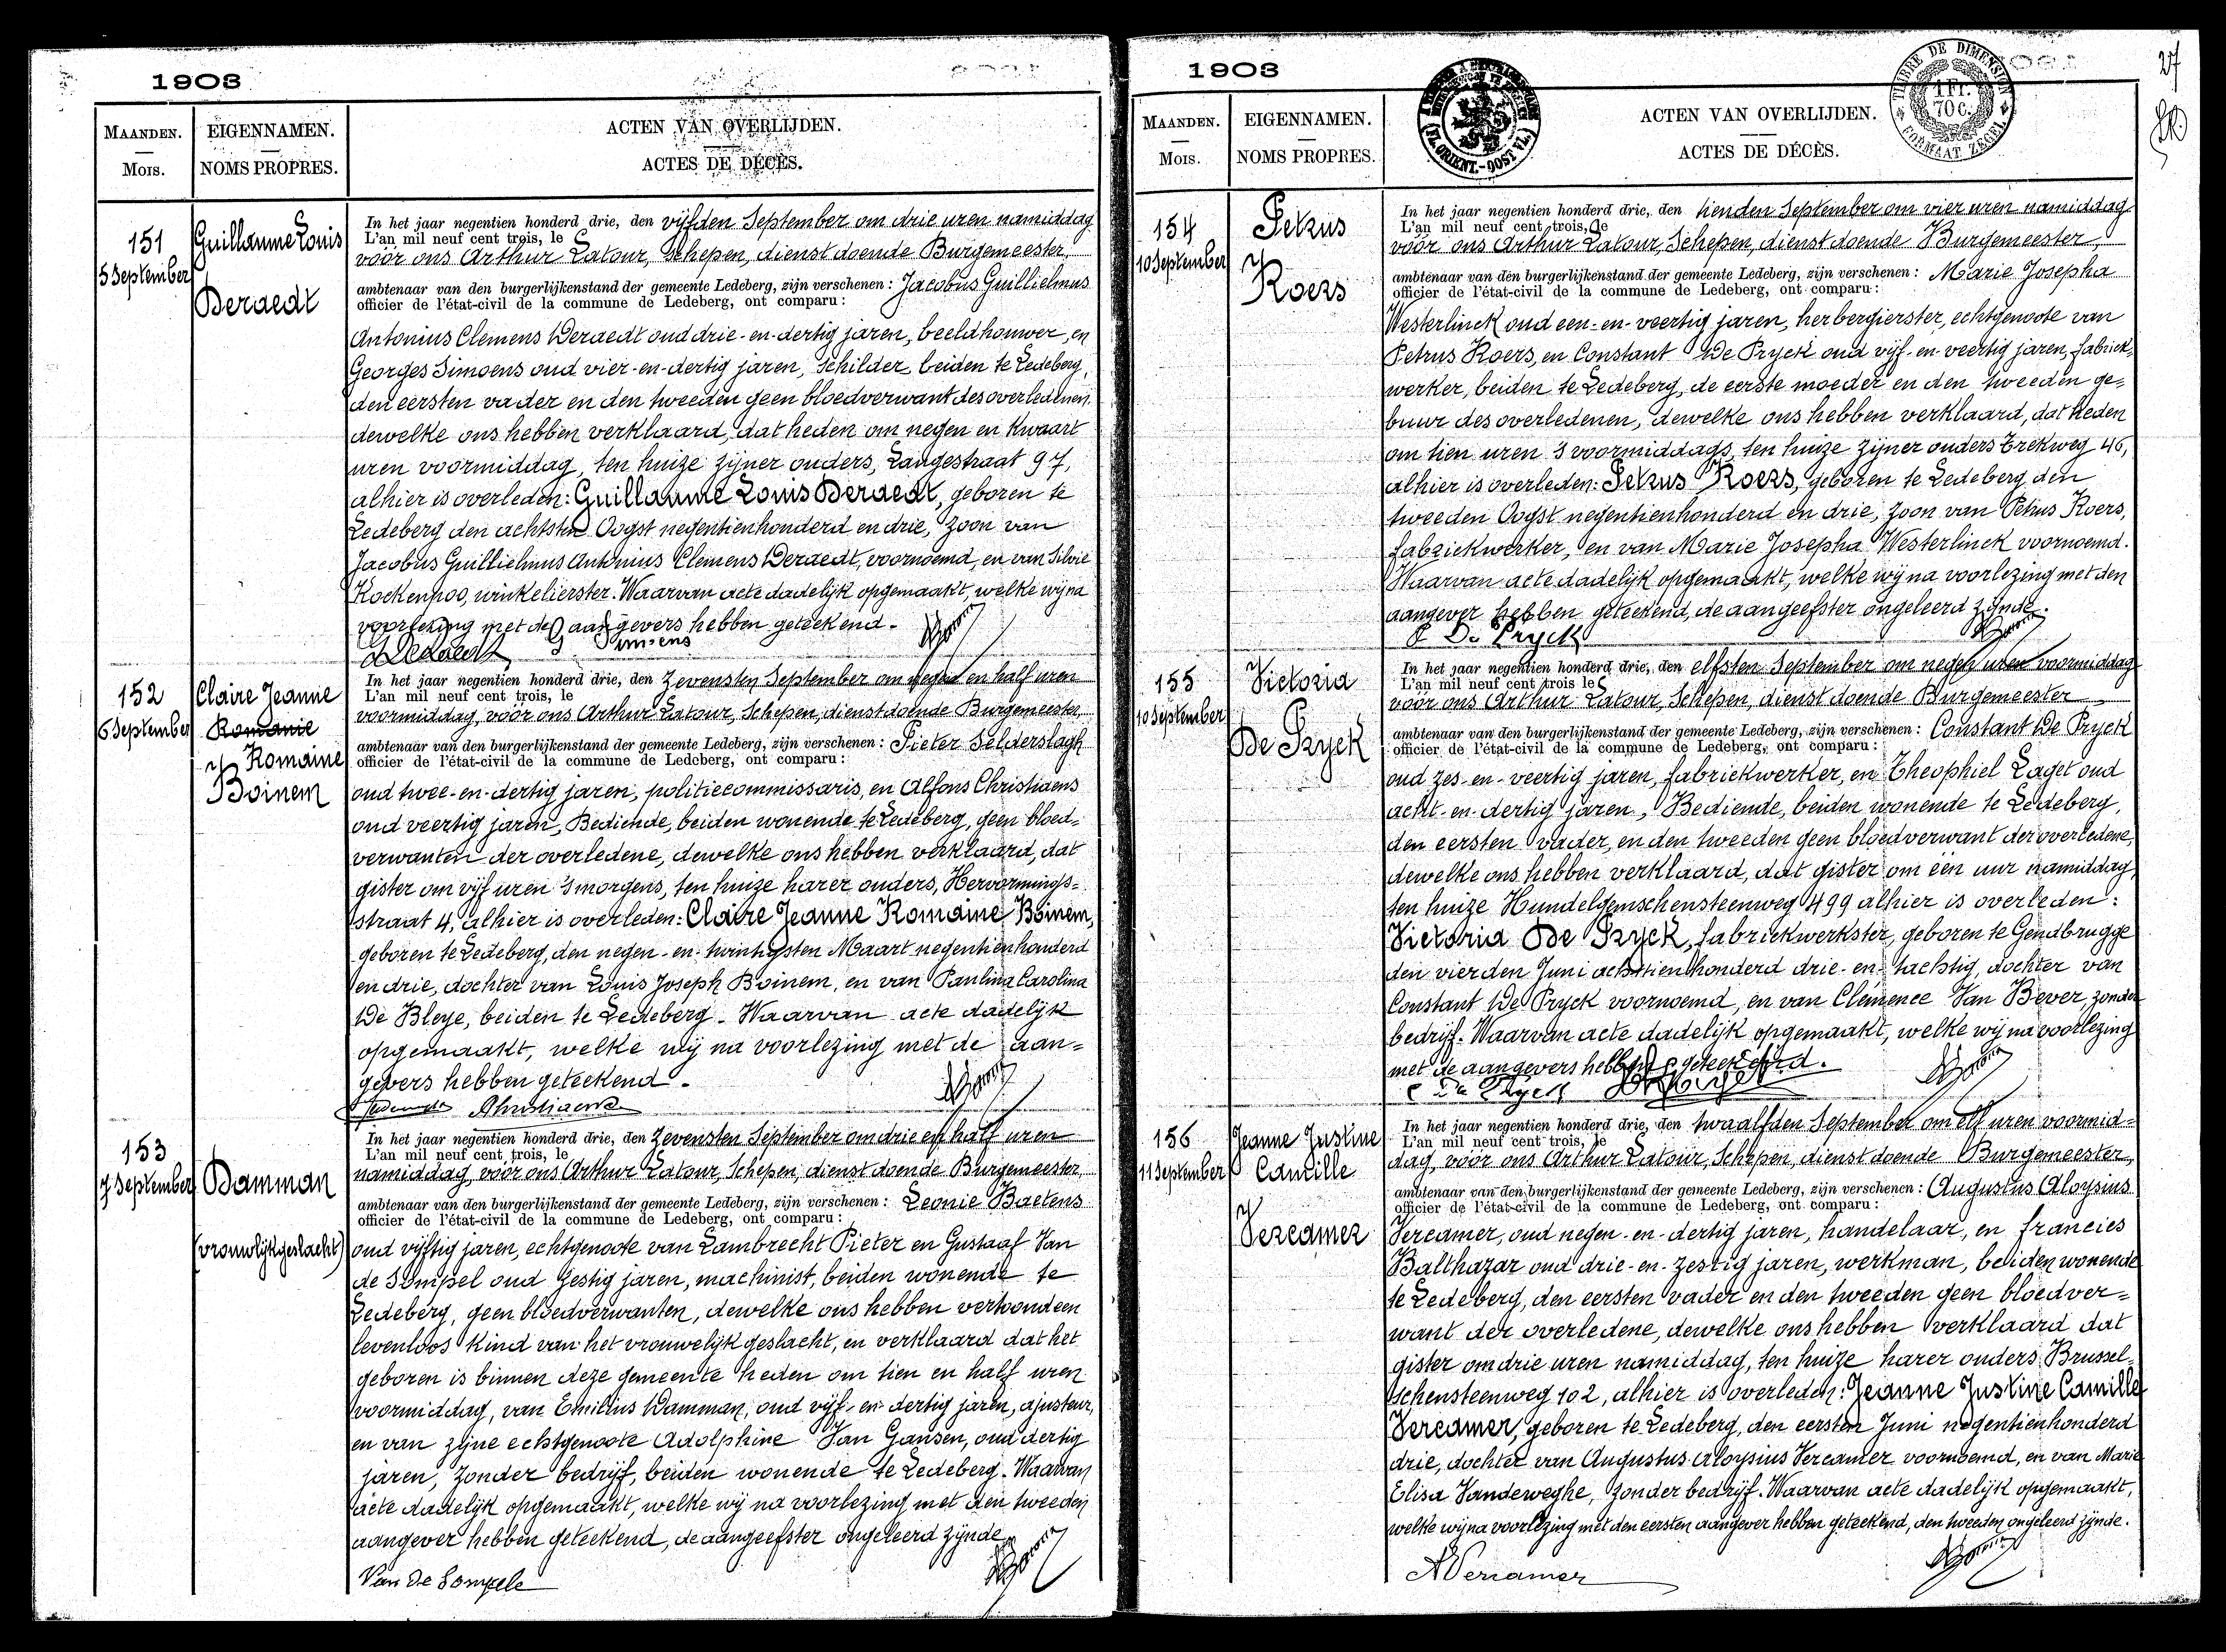 1903
MAANDEN.
MOIS.
EIGENNAMEN.
NOMS PROPRES.
ACTEN VAN OVERLIJDEN.
ACTES DE DÉCÈS.
151
5 September
Guillaume Louis
Deraedt
In het jaar negentien honderd drie, den vijfden September om drie uren namiddag
L'an mil neuf cent trois, le
vóór ons Arthur Latour, Schepen, dienstdoende Burgemeester,
ambtenaar van den burgerlijkenstand der gemeente Ledeberg, zijn verschenen: Jacobus Guillielmus
officier de l'état-civil de la commune de Ledeberg, ont comparu:
Antonius Clemens Deraedt oud drie-en-dertig jaren, beeldhouwer, en
Georges Simoens oud vier-en-dertig jaren, schilder, beiden te Ledeberg,
den eersten vader en den tweeden geen bloedverwant des overledenen.
dewelke ons hebben verklaard, dat heden om negen en kwaart
uren voormiddag, ten huize zijner ouders, Langestraat 97,
alhier is overleden: Guillaume Louis Deraedt, geboren te
Ledeberg den achtsten Oogst negentienhonderd en drie, zoon van
Jacobus Guillielmus Antonius Clemens Deraedt, voornoemd, en van Silvie
Kockenpoo, winkelierster. Waarvan acte dadelijk opgemaakt, welke wij na
voorlezing met de aangevers hebben geteekend.
Deraedt G Simoens
152
6 September
Claire Jeanne
Romanie
Romaine
Boinem
In het jaar negentien honderd drie, den Zevensten September om negen en half uren
L'an mil neuf cent trois, le
voormiddag, vóór ons Arthur Latour, Schepen, dienstdoende Burgemeester,
ambtenaar van den burgerlijkenstand der gemeente Ledeberg, zijn verschenen: Pieter Selderslagh
officier de l'état-civil de la commune de Ledeberg, ont comparu:
oud twee-en-dertig jaren, politiecommissaris, en Alfons Christiaens
oud veertig jaren, Bediende, beiden wonende te Ledeberg, geen bloed=
verwanten der overledene, dewelke ons hebben verklaard, dat
gister om vijf uren 's morgens, ten huize harer ouders, Hervormings=
straat 4, alhier is overleden: Claire Jeanne Romaine Boinem,
geboren te Ledeberg, den negen-en-twintigsten Maart negentienhonderd
en drie, dochter van Louis Joseph Boinem, en van Paulina Carolina
De Bleye, beiden te Ledeberg. Waarvan acte dadelijk
opgemaakt, welke wij na voorlezing met de aan=
gevers hebben geteekend.
AChristiaens
153
7 September
Damman
(vrouwlijkgeslacht)
In het jaar negentien honderd drie, den Zevensten September om drie en half uren
L'an mil neuf cent trois, le
namiddag, vóór ons Arthur Latour, Schepen, dienstdoende Burgemeester,
ambtenaar van den burgerlijkenstand der gemeente Ledeberg, zijn verschenen: Leonie Baetens
officier de l'état-civil de la commune de Ledeberg, ont comparu:
oud vijftig jaren, echtgenoote van Lambrecht Pieter en Gustaaf Van
de Sompel oud zestig jaren, machinist, beiden wonende te
Ledeberg, geen bloedverwanten, dewelke ons hebben vertoond een
levenloos kind van het vrouwelijk geslacht, en verklaard dat het
geboren is binnen deze gemeente heden om tien en half uren
voormiddag, van Emilius Damman, oud vijf-en-dertig jaren, ajusteur,
en van zijne echtgenoote Adolphine Van Gansen, oud dertig
jaren, zonder bedrijf, beiden wonende te Ledeberg. Waarvan
acte dadelijk opgemaakt, welke wij na voorlezing met den tweeden
aangever hebben geteekend, de aangeefster ongeleerd zijnde
Van De Sompele
1903
27
TIMBRE DE DIMENSION
1 Fr.
70 c.
FORMAAT ZEGEL
(FL. ORIENT.-OOST VL.)
MAANDEN.
MOIS.
EIGENNAMEN.
NOMS PROPRES.
ACTEN VAN OVERLIJDEN.
ACTES DE DÉCÈS.
154
10 September
Petrus
Roers
In het jaar negentien honderd drie, den tienden September om vier uren namiddag
L'an mil neuf cent trois, le
vóór ons Arthur Latour, Schepen, dienst doende Burgemeester,
ambtenaar van den burgerlijkenstand der gemeente Ledeberg, zijn verschenen: Marie Josepha
officier de l'état-civil de la commune de Ledeberg, ont comparu:
Westerlinck oud een-en-veertig jaren, herbergierster, echtgenoote van
Petrus Roers, en Constant De Pryck oud vijf-en-veertig jaren, fabriek=
werker, beiden te Ledeberg, de eerste moeder en den tweeden ge=
buur des overledenen, dewelke ons hebben verklaard, dat heden
om tien uren 's voormiddags, ten huize zijner ouders Trekweg 46,
alhier is overleden: Petrus Roers, geboren te Ledeberg den
tweeden Oogst negentienhonderd en drie, zoon van Petrus Roers,
fabriekwerker, en van Marie Josepha Westerlinck voornoemd.
Waarvan acte dadelijk opgemaakt, welke wij na voorlezing met den
aangever hebben geteekend, de aangeefster ongeleerd zijnde.
C De Pryck
155
10 September
Victoria
De Pryck
In het jaar negentien honderd drie, den elfsten September om negen uren voormiddag
L'an mil neuf cent trois le
vóór ons Arthur Latour, Schepen, dienst doende Burgemeester
ambtenaar van den burgerlijkenstand der gemeente Ledeberg, zijn verschenen: Constant De Pryck
officier de l'état-civil de la commune de Ledeberg, ont comparu:
oud zes-en-veertig jaren, fabriekwerker, en Theophiel Laget oud
acht-en-dertig jaren, Bediende, beiden wonende te Ledeberg,
den eersten vader, en den tweeden geen bloedverwant der overledene,
dewelke ons hebben verklaard, dat gister om één uur namiddag,
ten huize Hundelgemschensteenweg 499 alhier is overleden:
Victoria De Pryck, fabriekwerkster, geboren te Gendbrugge
den vierden Juni achttienhonderd drie-en-tachtig, dochter van
Constant De Pryck voornoemd, en van Clémence Van Bever, zonder
bedrijf. Waarvan acte dadelijk opgemaakt, welke wij na voorlezing
met de aangevers hebben geteekend.
C De Pryck
156
11 September
Jeanne Justine
Camille
Vercamer
In het jaar negentien honderd drie, den twaalfden September om elf uren voormid=
L'an mil neuf cent trois, le
dag, vóór ons Arthur Latour, Schepen, dienst doende Burgemeester,
ambtenaar van den burgerlijkenstand der gemeente Ledeberg, zijn verschenen: Augustus Aloysius
officier de l'état-civil de la commune de Ledeberg, ont comparu:
Vercamer, oud negen-en-dertig jaren, handelaar, en francies
Balthazar oud drie-en-zestig jaren, werkman, beiden wonende
te Ledeberg, den eersten vader en den tweeden geen bloedver=
want der overledene, dewelke ons hebben verklaard dat
gister om drie uren namiddag, ten huize harer ouders Brussel=
schensteenweg 102, alhier is overleden: Jeanne Justine Camille
Vercamer, geboren te Ledeberg, den eersten Juni negentienhonderd
drie, dochter van Augustus Aloysius Vercamer voornoemd, en van Marie
Elisa Vandeweghe, zonder bedrijf. Waarvan acte dadelijk opgemaakt,
welke wij na voorlezing met den eersten aangever hebben geteekend, den tweeden ongeleerd zijnde.
AVercamer